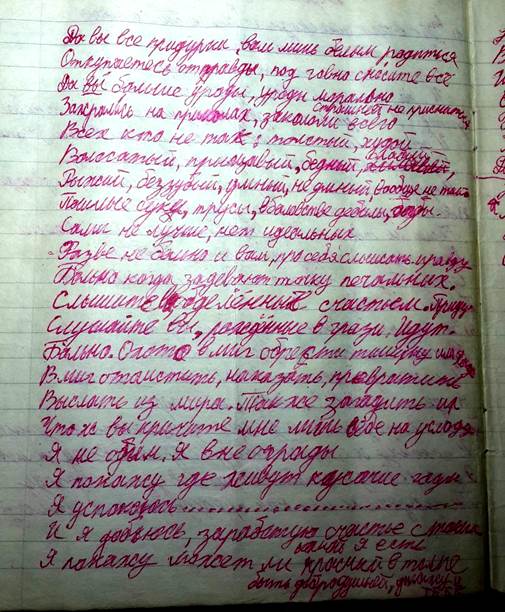 Да вы все придурки, вам лишь белым родиться
Откупаетесь от правды, под говно сносите всё
Да вы больше уроды, уроды морально
Зажрались на приколах, закололи всего
Всех кто не так: толстый, худой
Волосатый, прищавый, бедный, слабый,
Рыжий, беззубый, умный, не умный, вообще не такой
Пошлые суки, трусы, в баловстве дебилы,
Сами не лучше, нет идеальных
Разве не больно и вам, про себя слышать правду
Больно когда задевают точку печальных.
Слышите обделённый счастьем. Приду
Слушайте вы, рождённые в грязи. Идут.
Больно. Охота в миг обрести тишину
В миг отомстить, наказать, превратить
Выслать из мира. Так же загадить их
Что ж вы причините мне лишь себе на усладу
Я не обым. Я вне ограды
Я покажу где живут кусачие гады
Я успокоюсь..........
И я добьюсь, заработую счастье с таких
какая я есть
Я покажу может ли красива в толпе
быть добродушней,